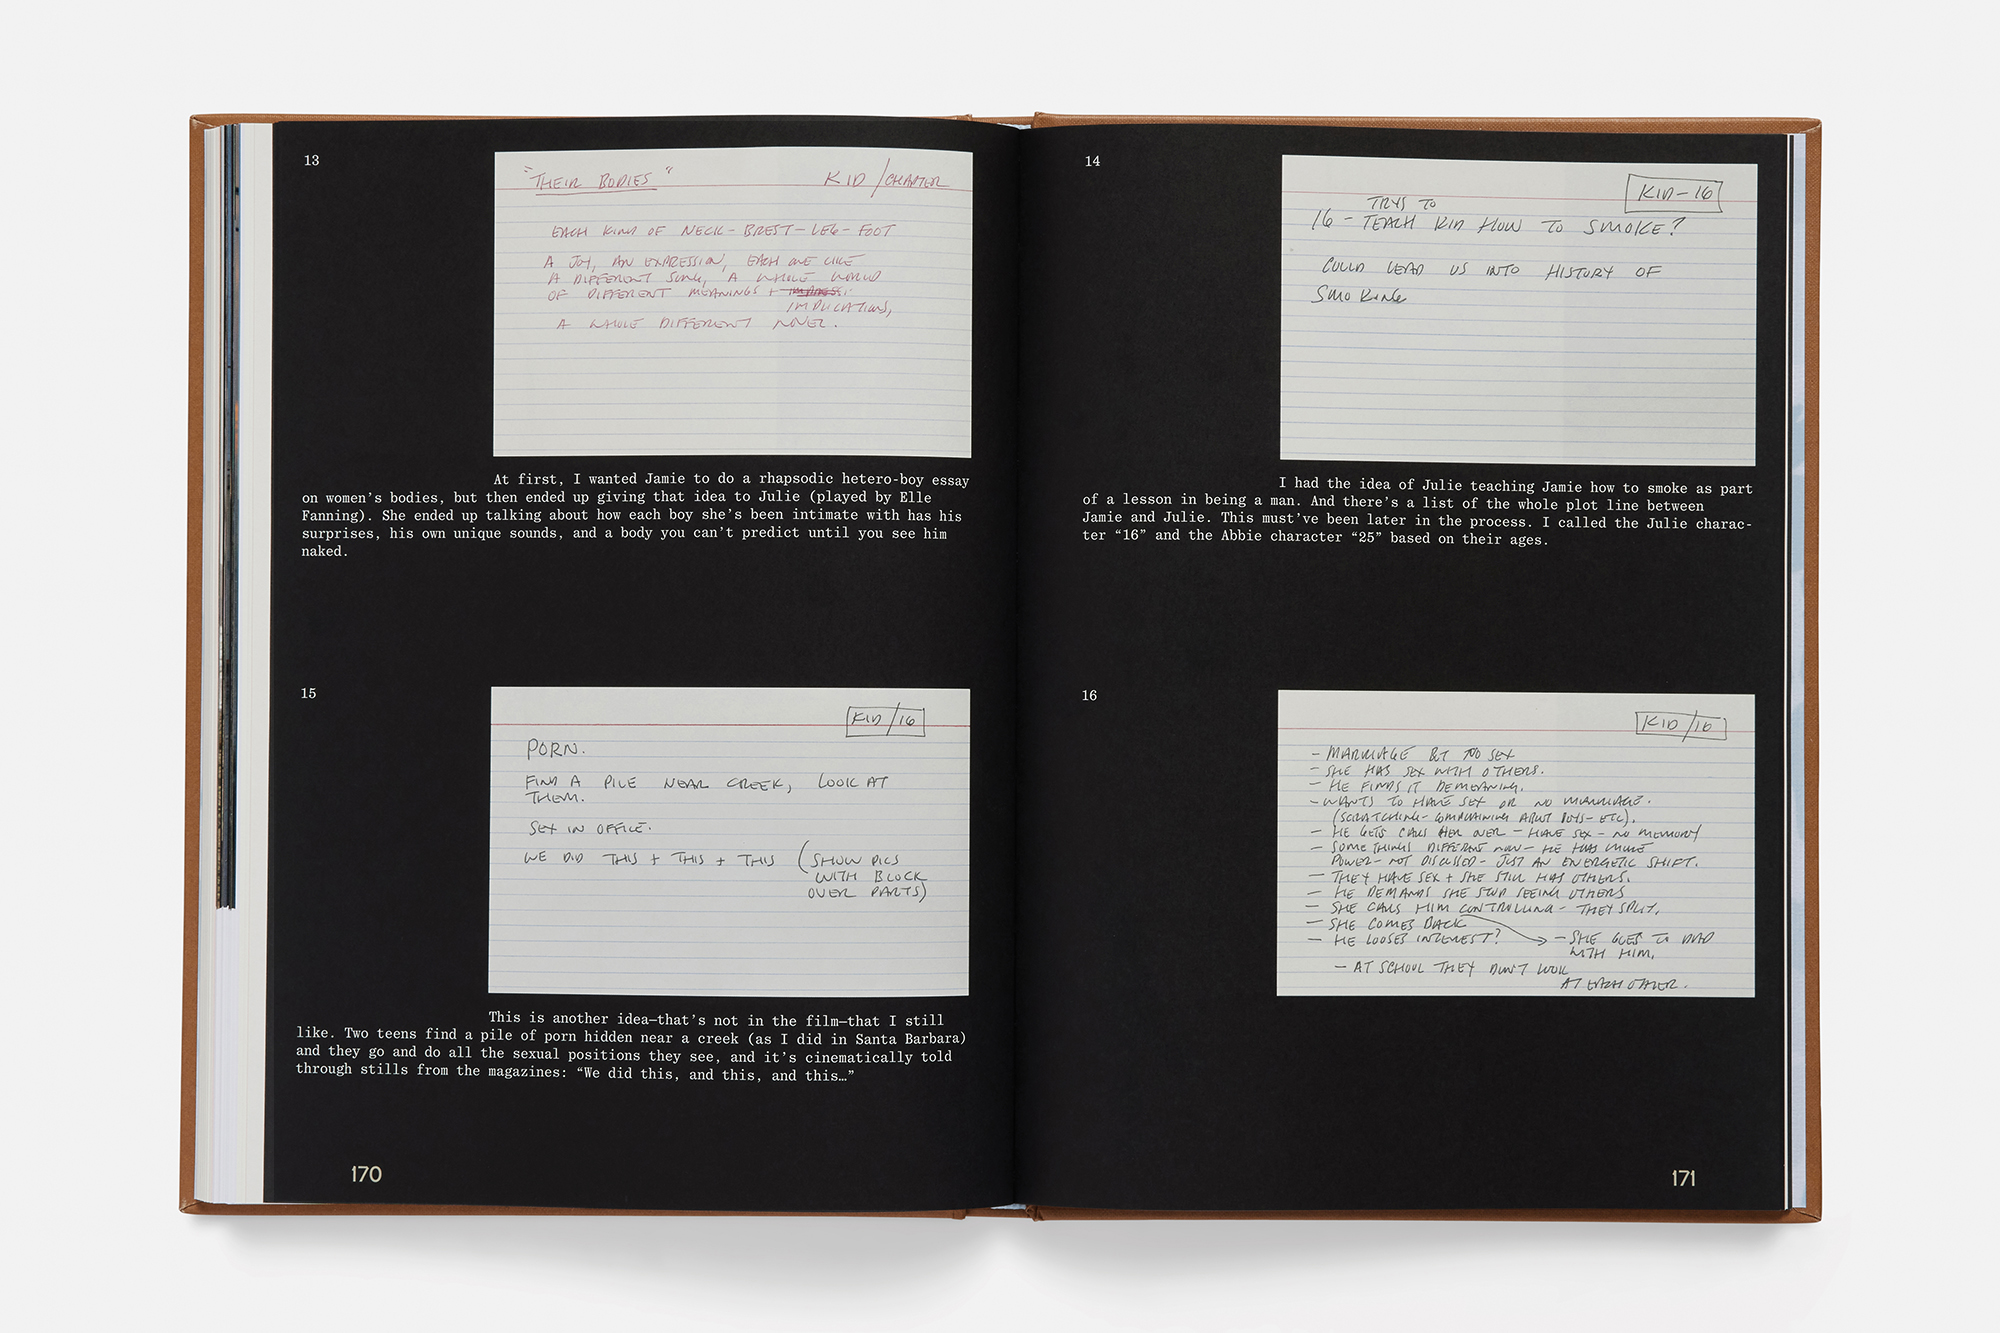 13
"THEIR BODIES" KID/CHAPTER
EACH KIND OF NECK-BREST-LEG-FOOT
A JOY, AN EXPRESSION, EACH ONE LIKE
A DIFFERENT SONG, A WHOLE WORLD
OF DIFFERENT MEANINGS +
IMPLICATIONS,
A WHOLE DIFFERENT NOVEL.
At first, I wanted Jamie to do a rhapsodic hetero-boy essay
on women's bodies, but then ended up giving that idea to Julie (played by Elle
Fanning). She ended up talking about how each boy she's been intimate with has his
surprises, his own unique sounds, and a body you can't predict until you see him
naked.
15
KID/16
PORN.
FIND A PILE NEAR CREEK, LOOK AT
THEM.
SEX IN OFFICE.
WE DID THIS + THIS + THIS (SHOW PICS
WITH BLOCK
OVER PARTS)
This is another idea—that's not in the film—that I still
like. Two teens find a pile of porn hidden near a creek (as I did in Santa Barbara)
and they go and do all the sexual positions they see, and it's cinematically told
through stills from the magazines: “We did this, and this, and this…”
170
14
KID-16
TRYS TO
16 - TEACH KID HOW TO SMOKE?
COULD LEAD US INTO HISTORY OF
SMOKING
I had the idea of Julie teaching Jamie how to smoke as part
of a lesson in being a man. And there's a list of the whole plot line between
Jamie and Julie. This must've been later in the process. I called the Julie charac-
ter “16” and the Abbie character “25” based on their ages.
16
KID/16
- MARRIAGE BT NO SEX
- SHE HAS SEX WITH OTHERS.
- HE FINDS IT DEMEANING.
- WANTS TO HAVE SEX OR NO MARRIAGE.
(SCRATCHING - COMPLAINING ABOUT BOYS - ETC).
- HE GETS CALLS HER OVER - HAVE SEX - NO MEMORY
- SOMETHINGS DIFFERENT NOW - HE HAS MORE
POWER - NOT DISCUSSED - JUST AN ENERGETIC SHIFT.
- THEY HAVE SEX + SHE STILL HAS OTHERS.
- HE DEMANDS SHE STOP SEEING OTHERS
- SHE CALLS HIM CONTROLLING - THEY SPLIT.
- SHE COMES BACK
- HE LOOSES INTEREST? - SHE GOES TO DAD
WITH HIM.
- AT SCHOOL THEY DON'T LOOK
AT EACH OTHER.
171